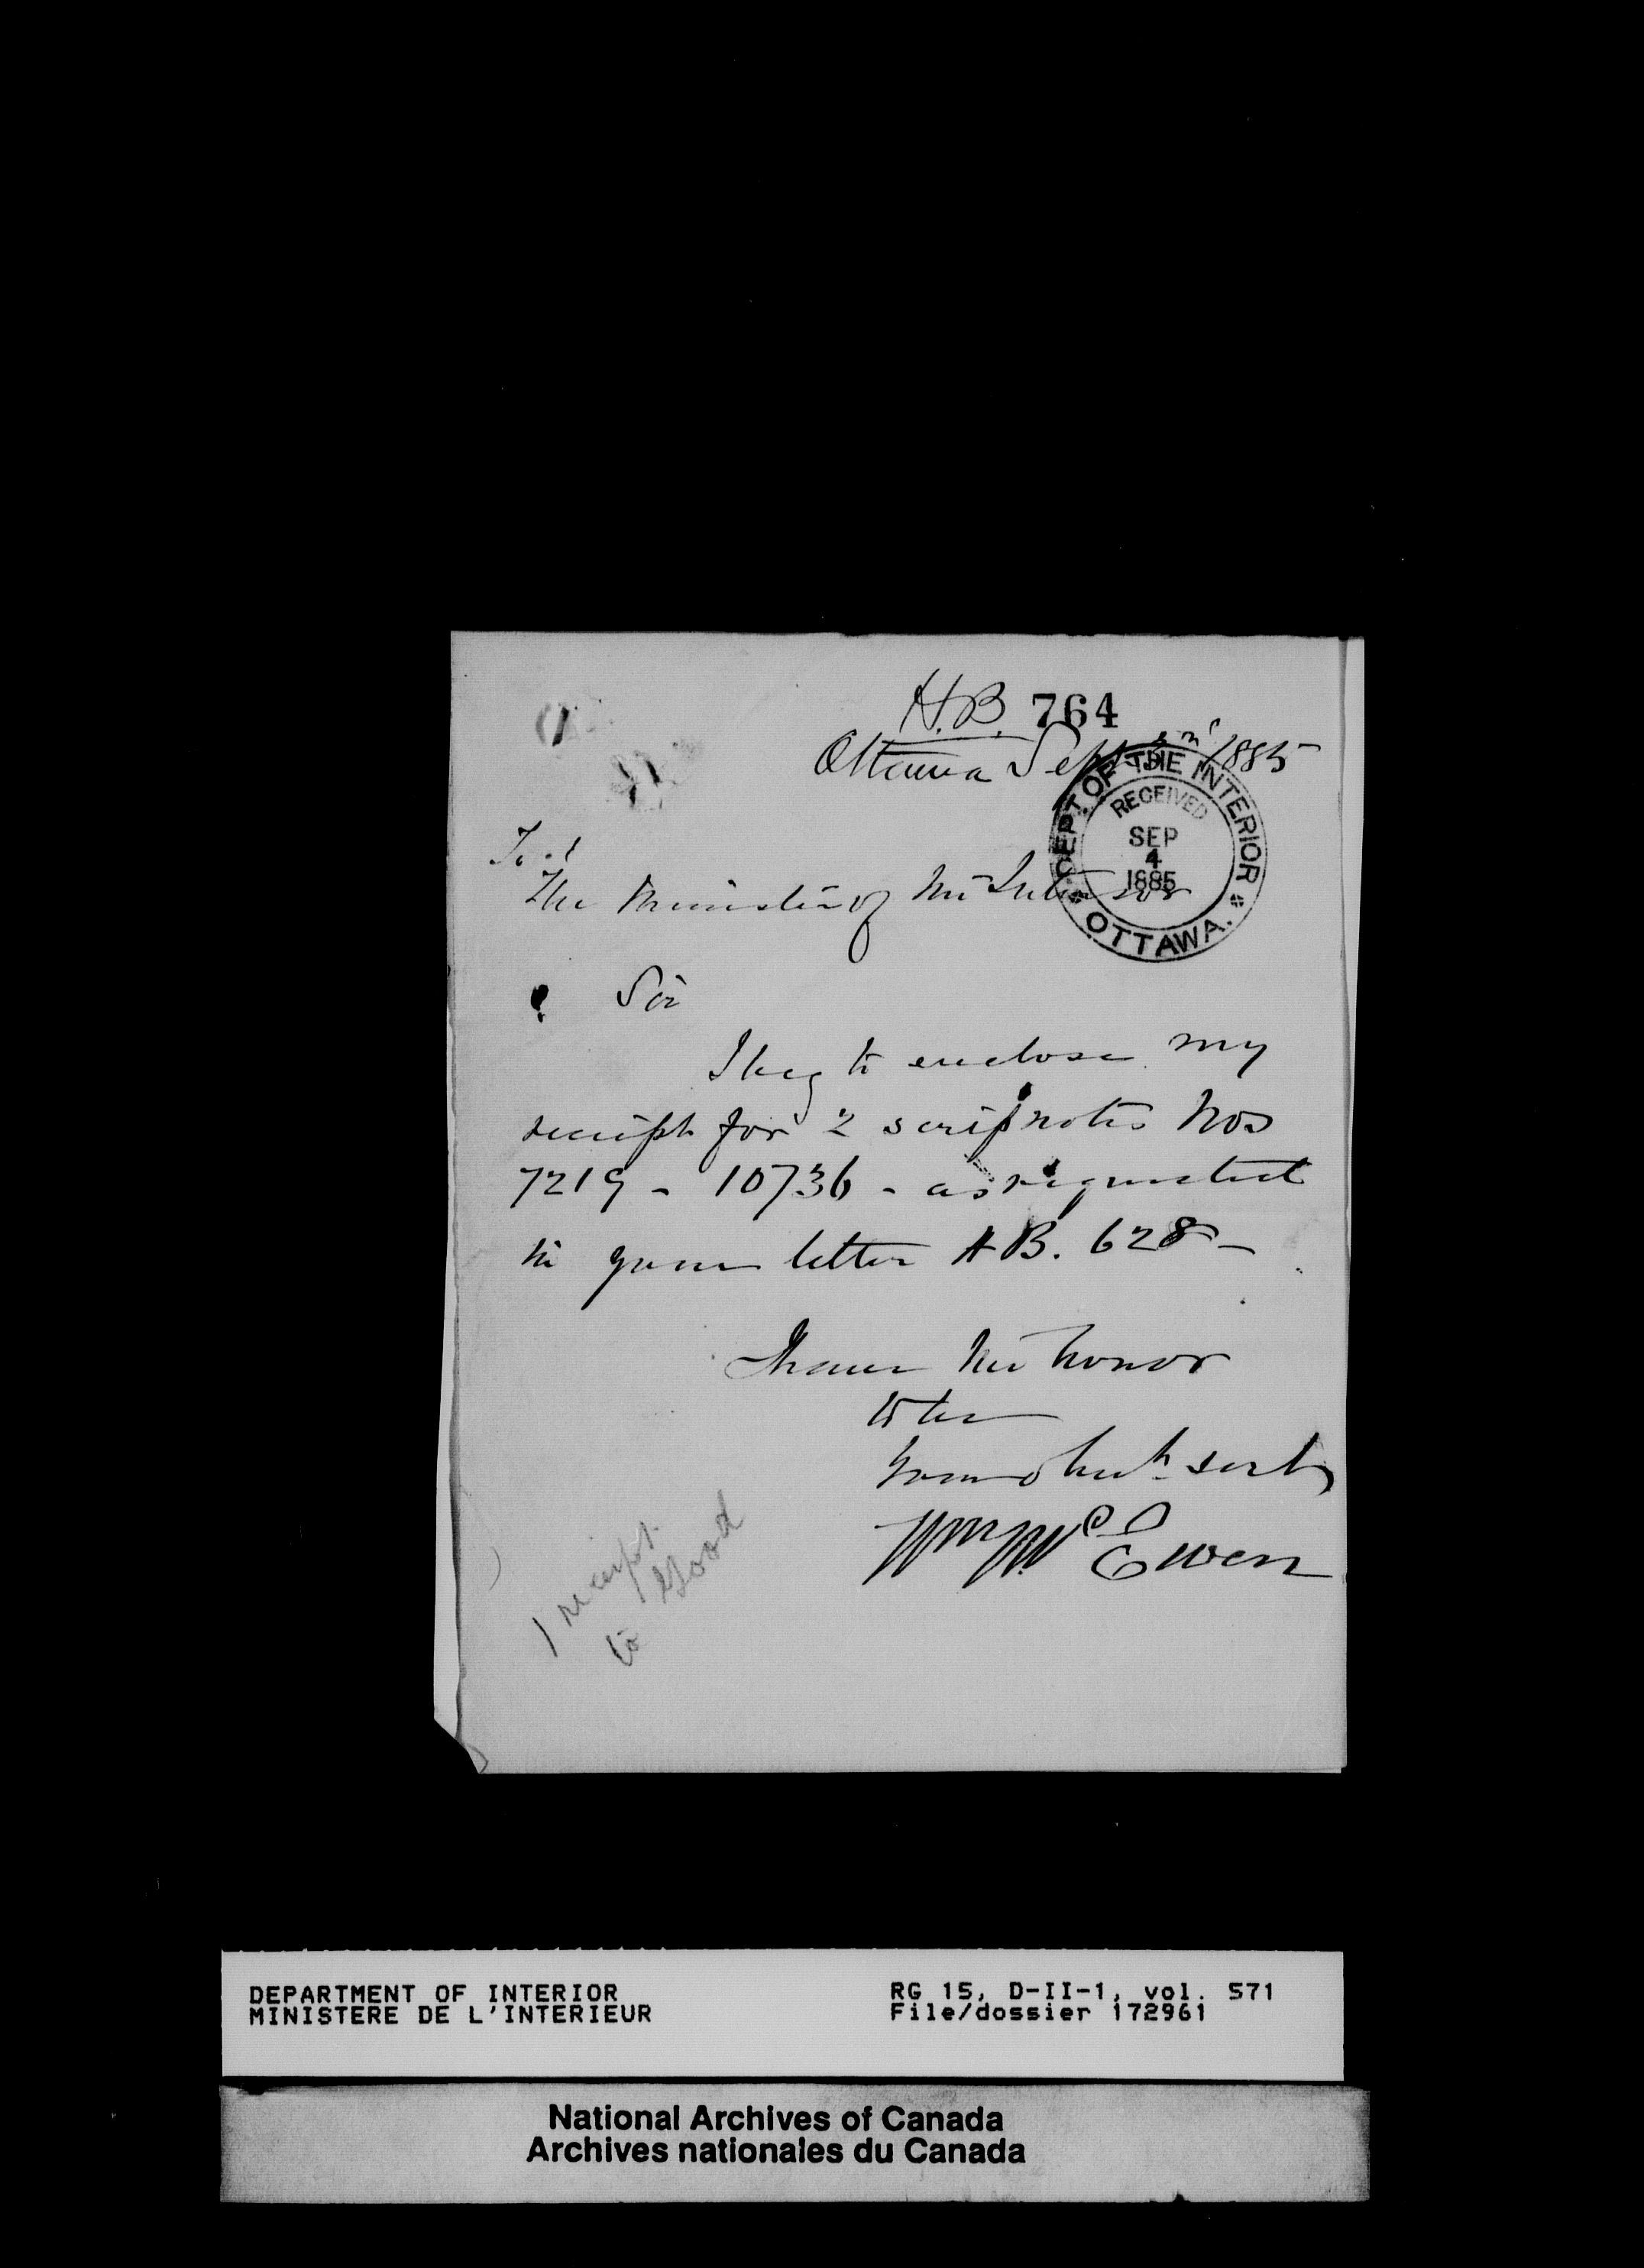 H.B. 764
Ottawa Sept 3rd 1885
DEPT. OF THE INTERIOR
RECEIVED
SEP
4
1885
OTTAWA.
To
The Minister of the Interior
Sir
I beg to enclose my
receipt for 2 scrip notes Nos
7219 - 10736 - as requested
in your letter HB. 628 -
I have the honor
to be
Your obedt servt
Wm McEwen
1 receipt
to Good
DEPARTMENT OF INTERIOR
MINISTERE DE L'INTERIEUR
RG 15, D-II-1, vol. 571
File/dossier 172961
National Archives of Canada
Archives nationales du Canada